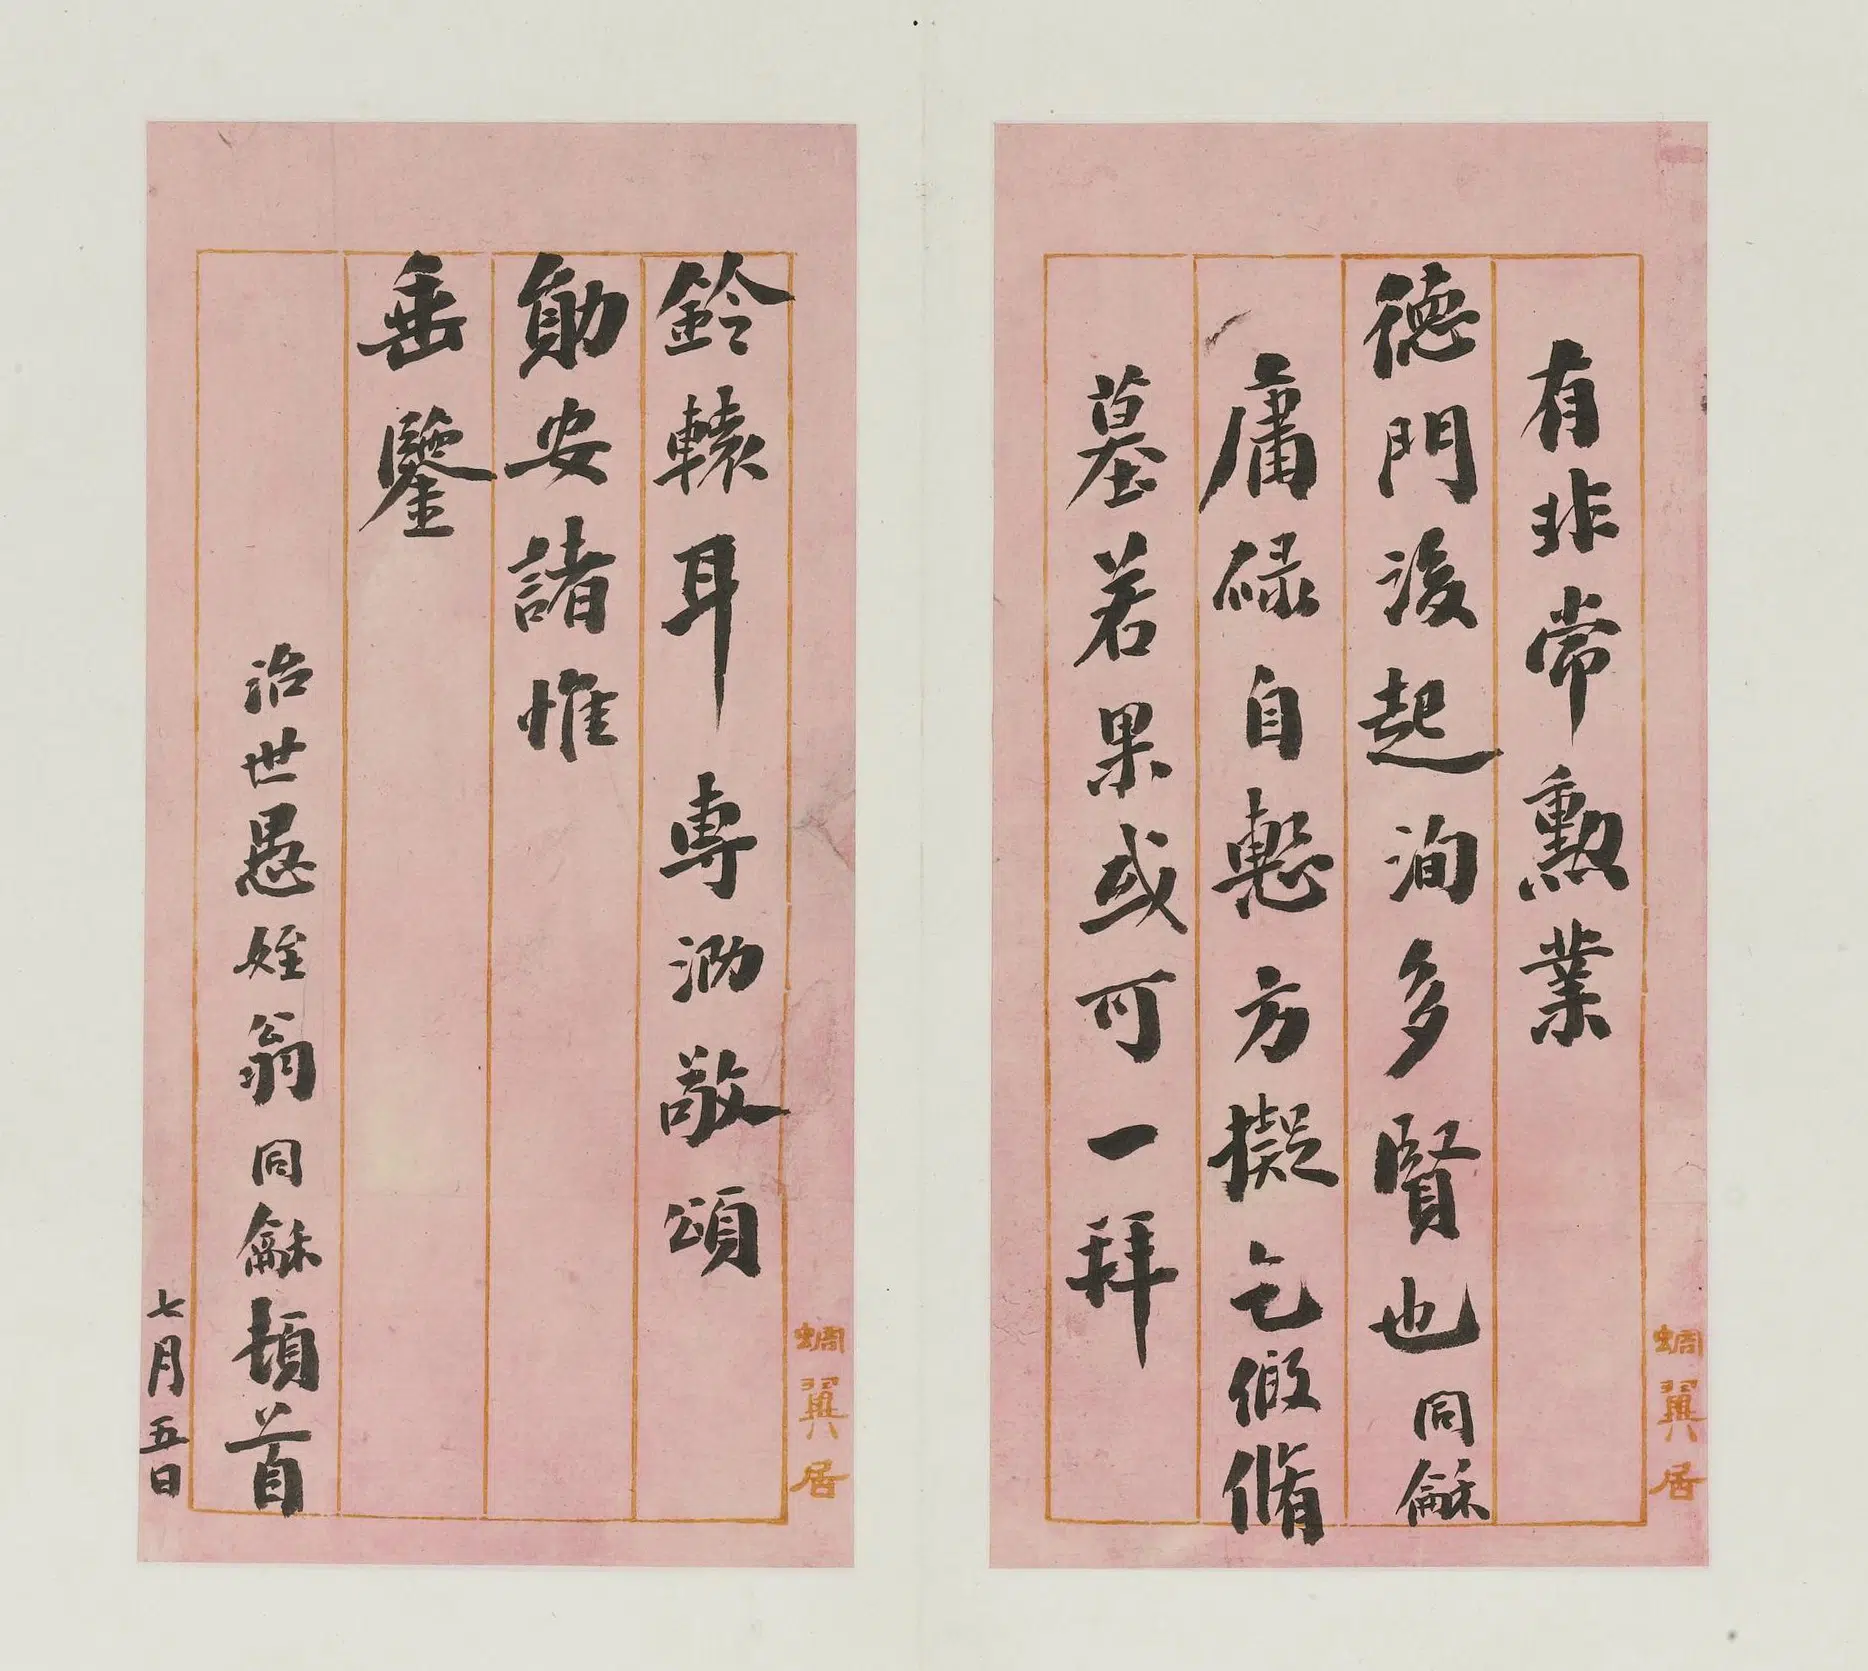 有非常勲業
德門後起洵多賢也同龢
庸碌自慙方擬乞假脩
墓若果或可一拜
蜩翼居
鈴轅耳專泐敬頌
勛安諸惟
垂鑒
治世愚姪翁同龢頓首
七月五日
蜩翼居